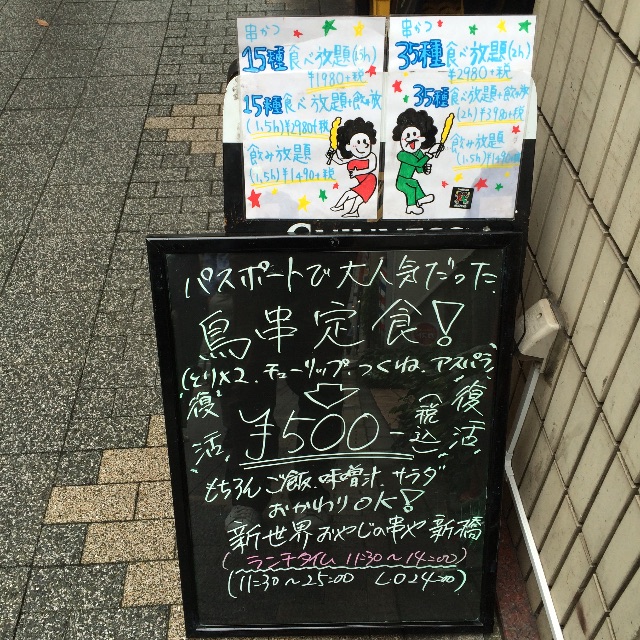 串かつ
15種食べ放題(1.5h)
¥1980+税
15種食べ放題+飲み放
(1.5h)¥2980+税
飲み放題
(1.5h)¥1490+税
串かつ
35種食べ放題(2h)
¥2980+税
35種食べ放題+飲み放
(2h)¥3980+税
飲み放題
(1.5h)
GUINNESS
パスポートで大人気だった
鳥串定食!
(とり×2、チューリップ、つくね、アスパラ)
"復活"
¥500-
(税込)
"復活"
もちろんご飯、味噌汁、サラダ
おかわりOK!
新世界おやじの串や 新橋
(ランチタイム 11:30〜14:00)
(11:30〜25:00 LO24:00)